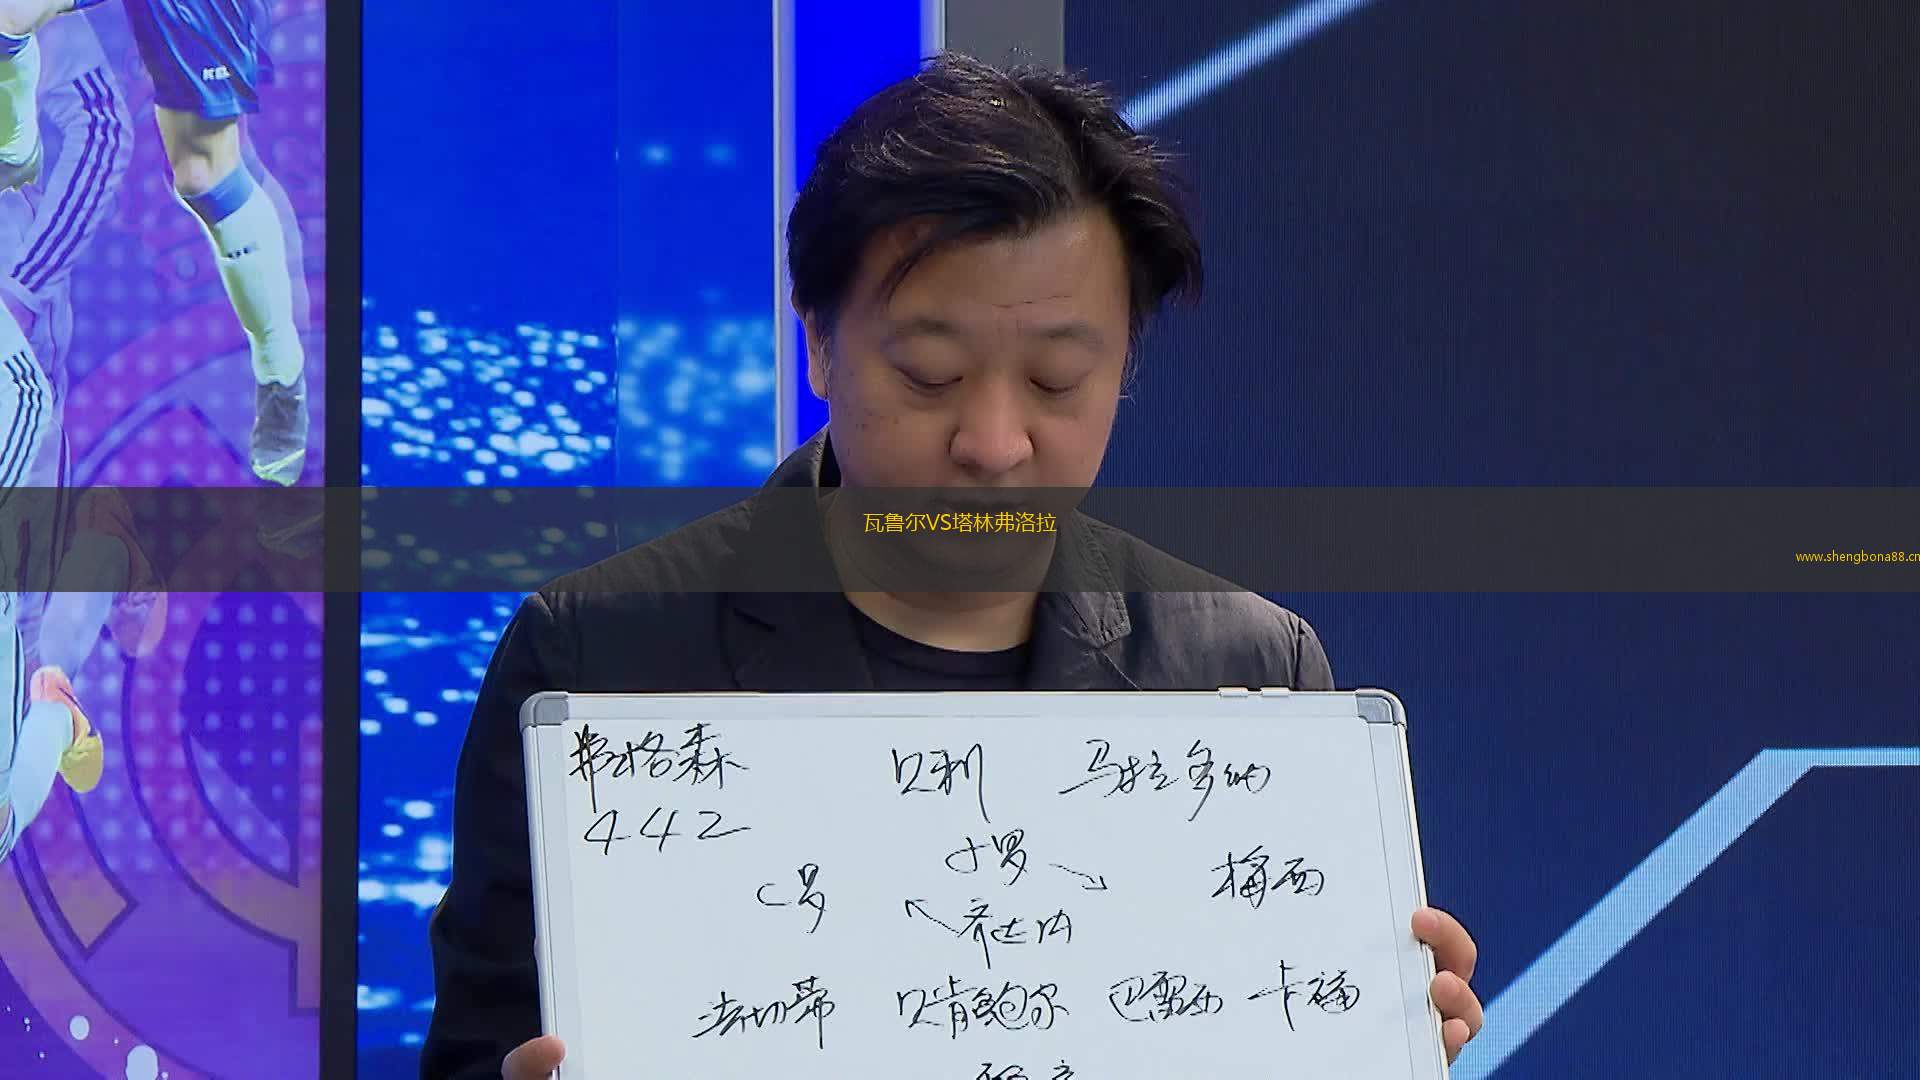 瓦鲁尔VS塔林弗洛拉
www.shengbona88.cn
弗格森 贝利 马拉多纳
442
小罗
C罗 梅西
齐达内
法切蒂 贝肯鲍尔 巴雷西 卡福